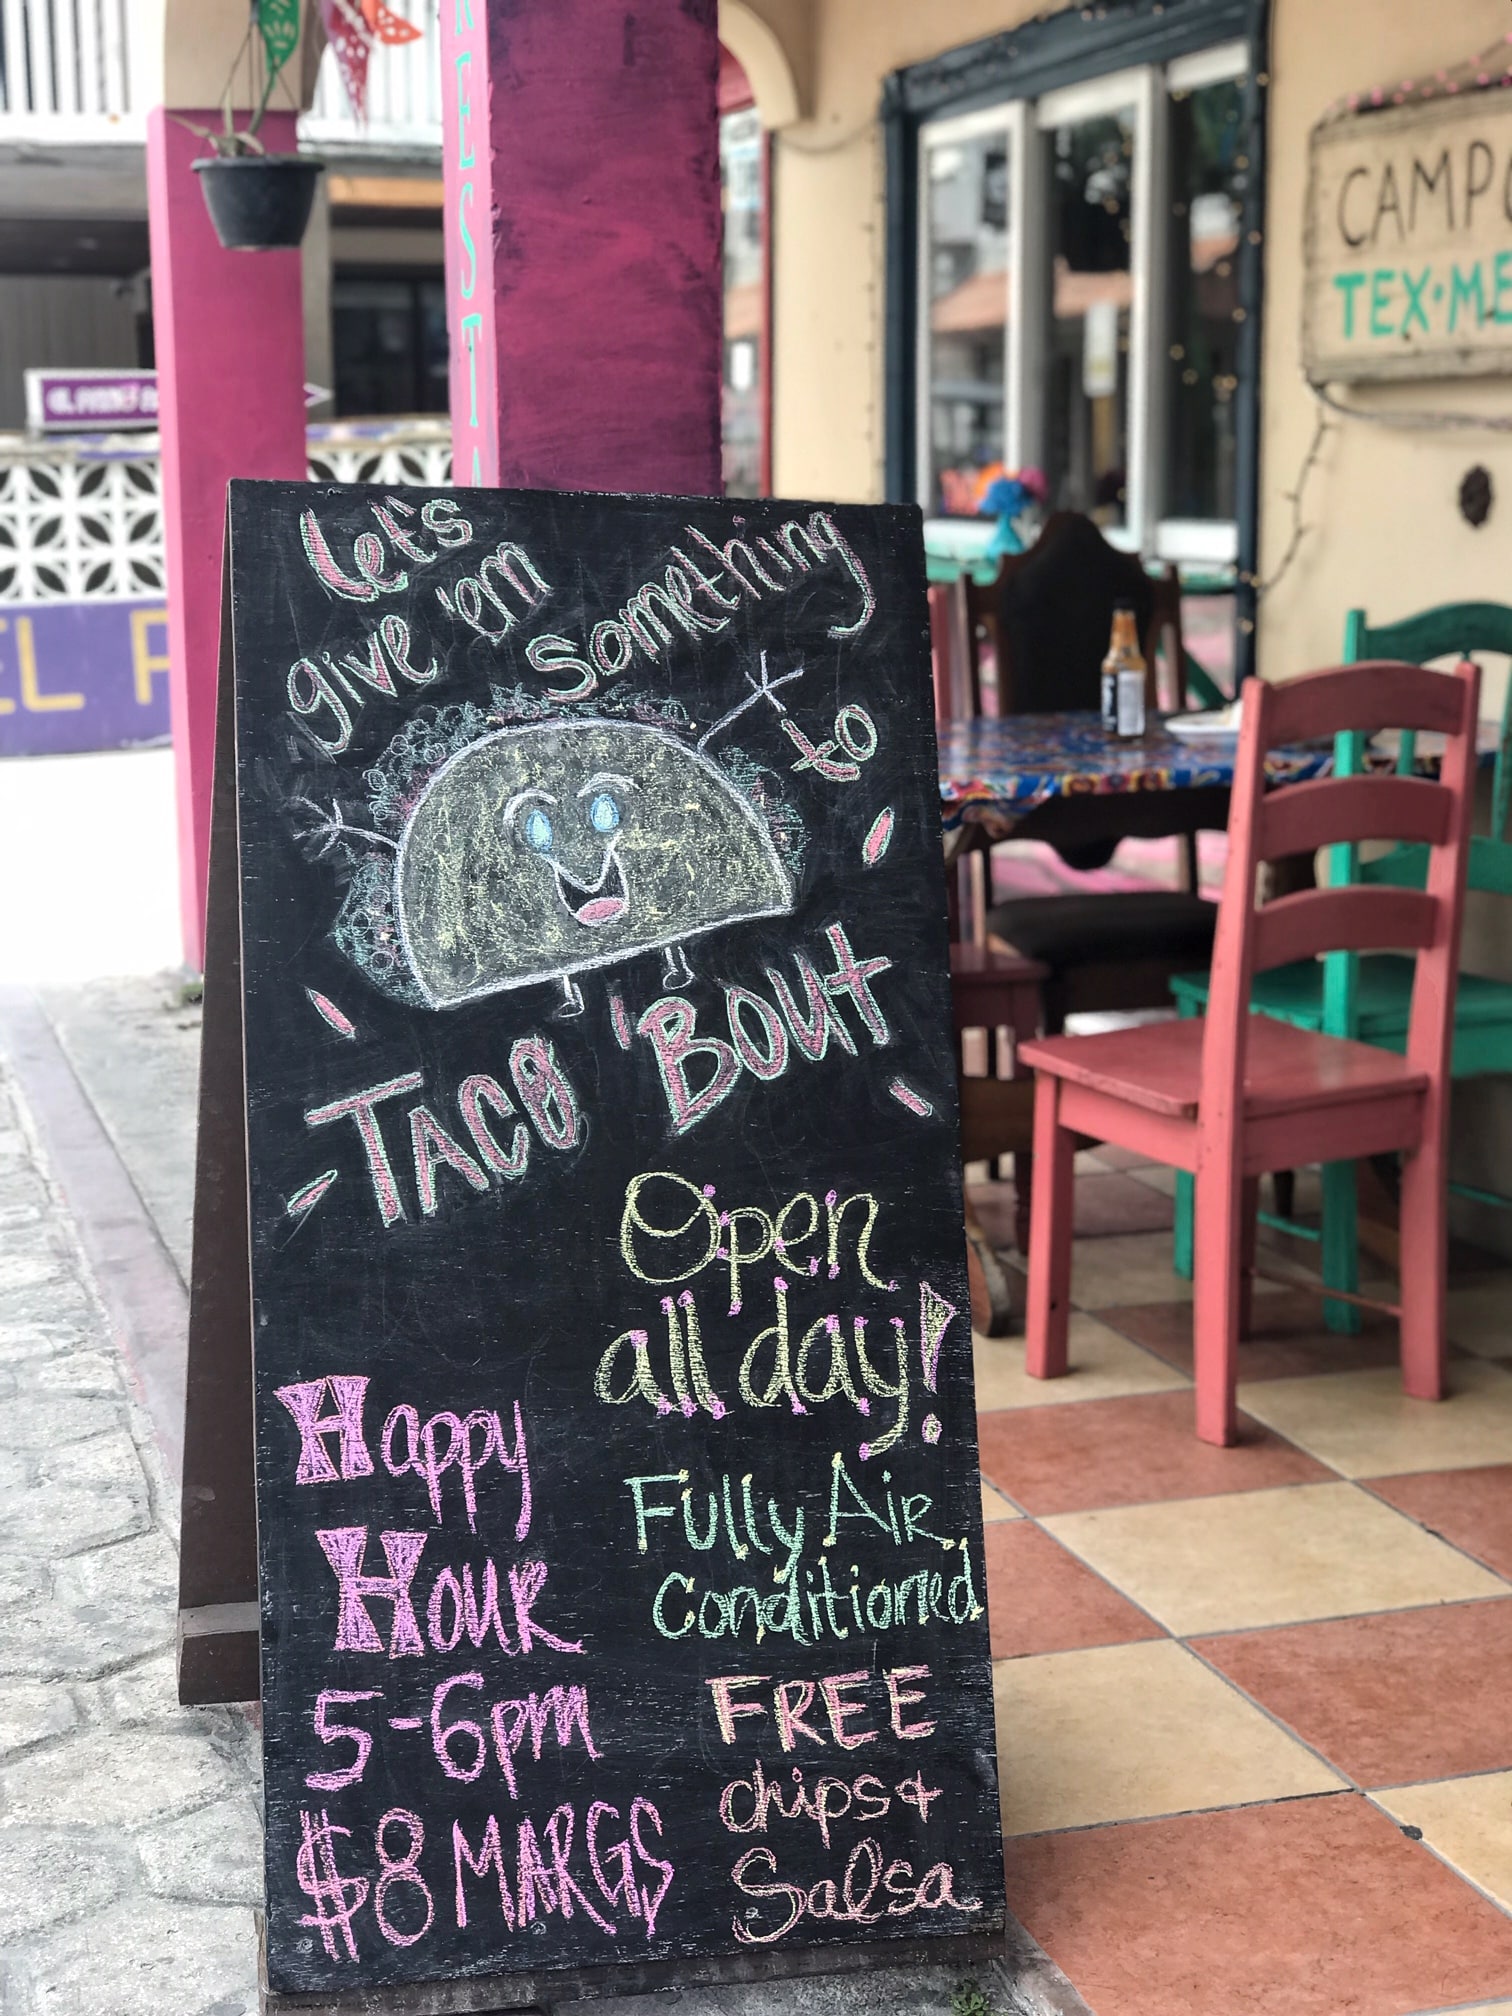 REST
CAMP
TEX-ME
EL
Let's
give 'em
something
to
TACO 'Bout
Open
all day!
Happy
Hour
5-6pm
$8 MARGS
Fully Air
Conditioned
FREE
chips &
Salsa